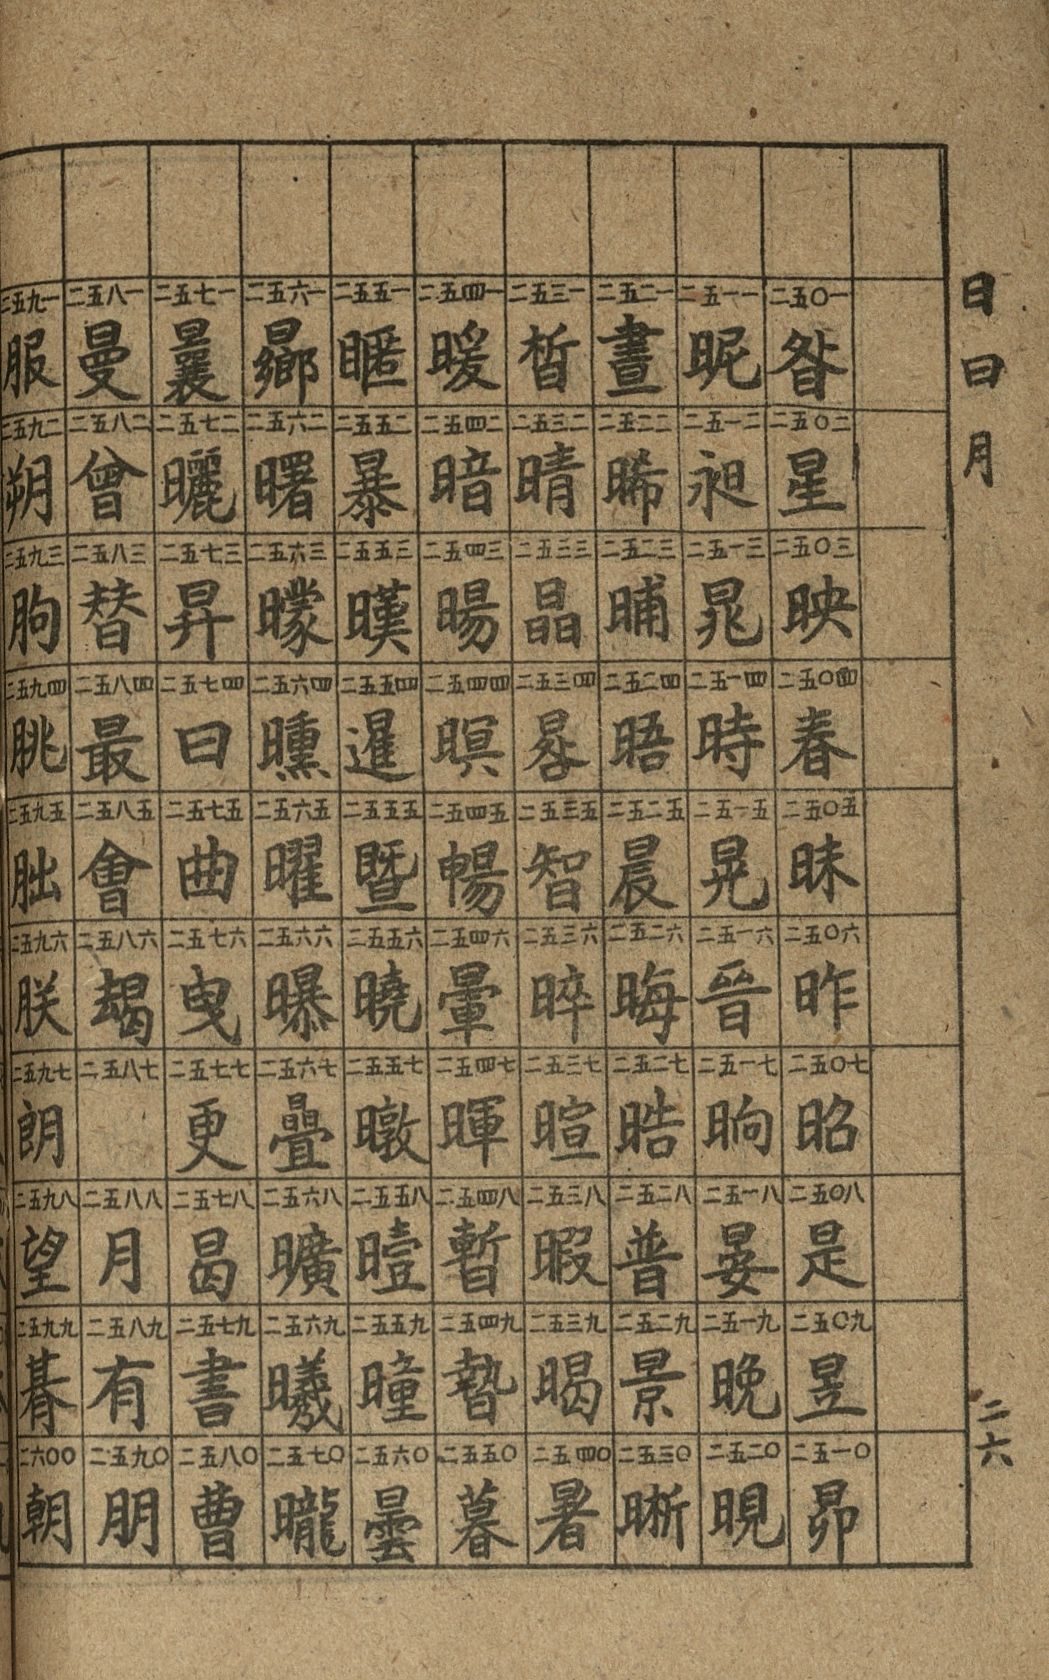 日曰月
二六
二五〇一 昝 二五〇二 星 二五〇三 映 二五〇四 春 二五〇五 昧 二五〇六 昨 二五〇七 昭 二五〇八 是 二五〇九 昱 二五一〇 昴
二五一一 昵 二五一二 昶 二五一三 晁 二五一四 時 二五一五 晃 二五一六 晉 二五一七 晌 二五一八 晏 二五一九 晚 二五二〇 晛
二五二一 晝 二五二二 晞 二五二三 晡 二五二四 晤 二五二五 晨 二五二六 晦 二五二七 晧 二五二八 普 二五二九 景 二五三〇 晰
二五三一 晳 二五三二 晴 二五三三 晶 二五三四 晷 二五三五 智 二五三六 晬 二五三七 暄 二五三八 暇 二五三九 暍 二五四〇 暑
二五四一 暖 二五四二 暗 二五四三 暘 二五四四 暝 二五四五 暢 二五四六 暈 二五四七 暉 二五四八 暫 二五四九 暬 二五五〇 暮
二五五一 暱 二五五二 暴 二五五三 暵 二五五四 暹 二五五五 暨 二五五六 曉 二五五七 暾 二五五八 曀 二五五九 曈 二五六〇 曇
二五六一 曏 二五六二 曙 二五六三 曚 二五六四 曛 二五六五 曜 二五六六 曝 二五六七 曡 二五六八 曠 二五六九 曦 二五七〇 曨
二五七一 曩 二五七二 曬 二五七三 昇 二五七四 曰 二五七五 曲 二五七六 曳 二五七七 更 二五七八 曷 二五七九 書 二五八〇 曹
二五八一 曼 二五八二 曾 二五八三 替 二五八四 最 二五八五 會 二五八六 朅 二五八七 二五八八 月 二五八九 有 二五九〇 朋
二五九一 服 二五九二 朔 二五九三 朐 二五九四 朓 二五九五 朏 二五九六 朕 二五九七 朗 二五九八 望 二五九九 朞 二六〇〇 朝